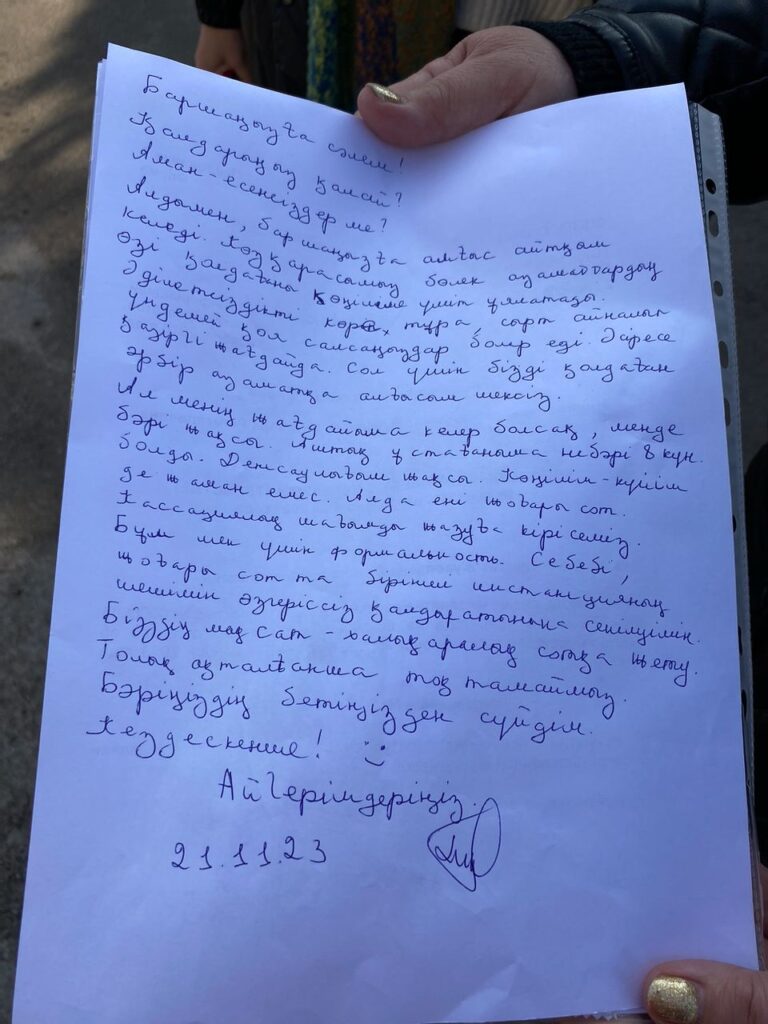 Баршаңызға сәлем!
Қалдарыңыз қалай?
Аман-есенсіздер ме?
Алдымен, баршаңызға алғыс айтқым
келеді. Көзқарасымыз бөлек азаматтардың
өзі қолдағаны көңілге үміт ұялатады.
Әділетсіздікті көре, тұра, сырт айналып
үндемей қоя салсаңыздар болар еді. Әсіресе
қазіргі жағдайда. Сол үшін бізді қолдаған
әрбір азаматқа алғысым шексіз.
Ал менің жағдайыма келер болсақ, менде
бәрі жақсы. Аштық ұстағаныма небәрі 8 күн.
болды. Денсаулығым жақсы. Көңілім-күйім
де жаман емес. Алда ені жоғары сот.
Кассациялық шағымды жазуға кірісеміз.
Бұл мен үшін формальность. Себебі,
жоғары сот та бірінші инстанцияның
шешімін өзгеріссіз қалдыратынына сенімдімін.
Біздің мақсат - халықаралық сотқа жету.
Толық ақталғанша тоқтамаймыз.
Бәріңіздің бетіңізден сүйдім.
Кездескенше! :)
Айгерімдеріңіз.
21.11.23